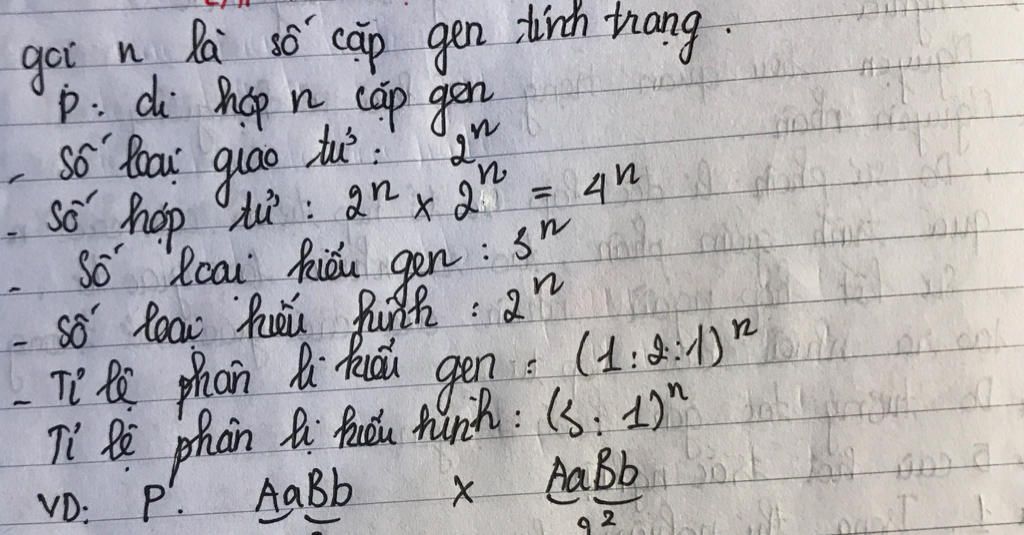 gọi n là số cặp gen tính trạng.
P: dị hợp n cặp gen
- Số loại giao tử: 2ⁿ
- Số hợp tử: 2ⁿ x 2ⁿ = 4ⁿ
- Số loại kiểu gen: 3ⁿ
- Số loại kiểu hình: 2ⁿ
- Tỉ lệ phân li kiểu gen: (1:2:1)ⁿ
Tỉ lệ phân li kiểu hình: (3:1)ⁿ
VD: P: AaBb x AaBb
2²